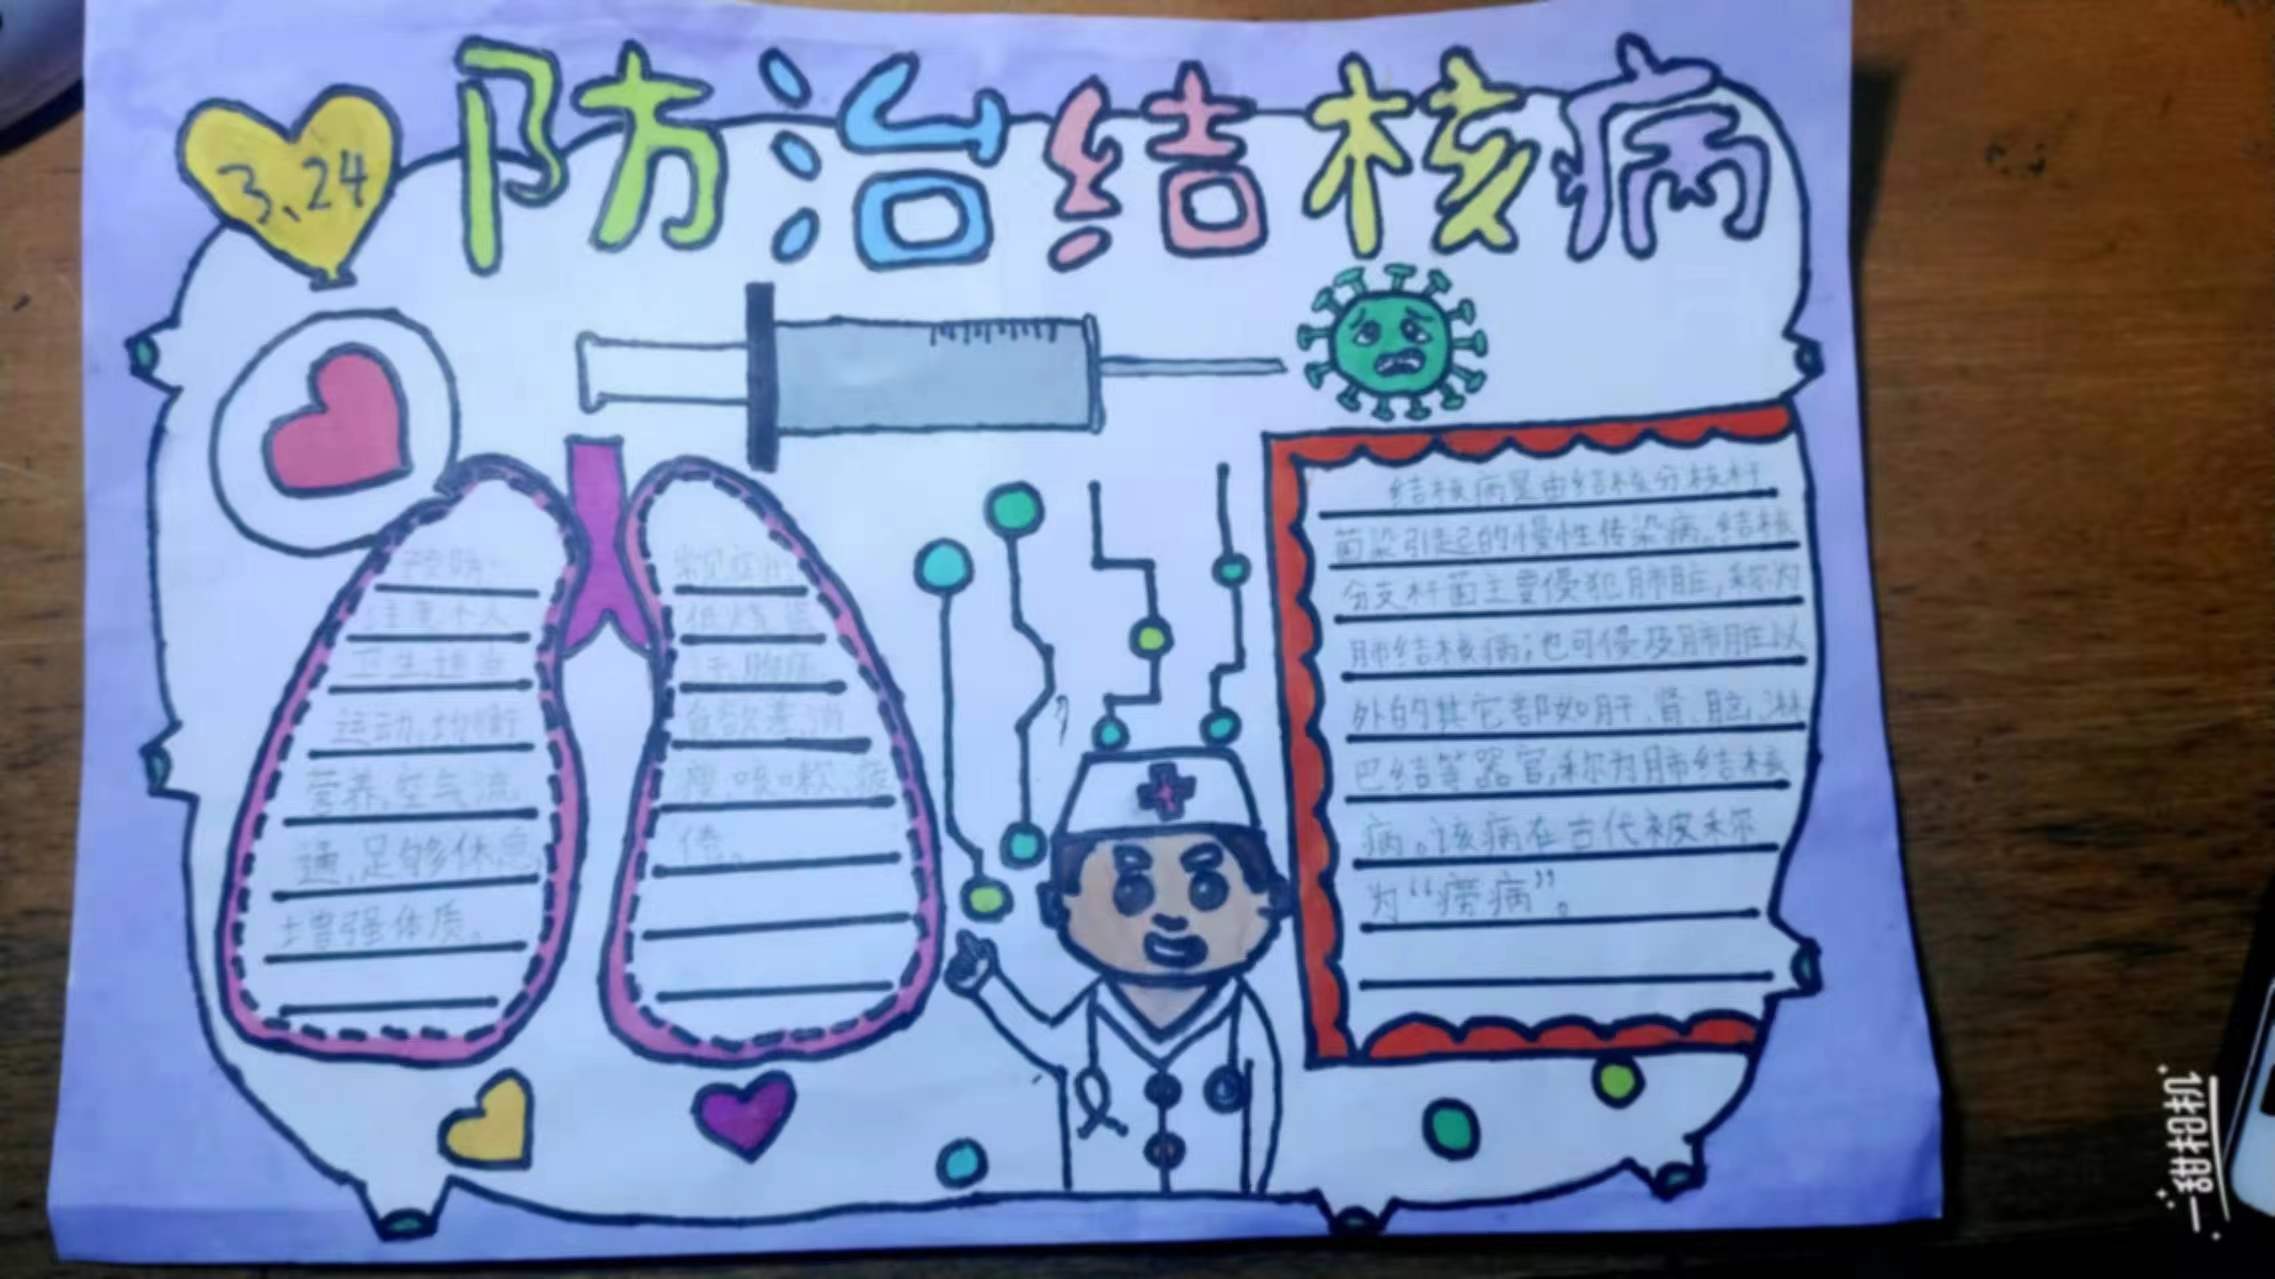 3.24
防治结核病
预防:
注意个人
卫生,适当
运动,均衡
营养,空气流
通,足够休息
增强体质。
常见症状:
低烧,盗
汗,胸痛
食欲差,消
瘦,咳嗽,疲
倦。
结核病是由结核分枝杆
菌染引起的慢性传染病。结核
分支杆菌主要侵犯肺脏,称为
肺结核病;也可侵及肺脏以
外的其它部如肝、肾、脑、淋
巴结等器官,称为肺结核
病。该病在古代被称
为“痨病”。
一甜相机